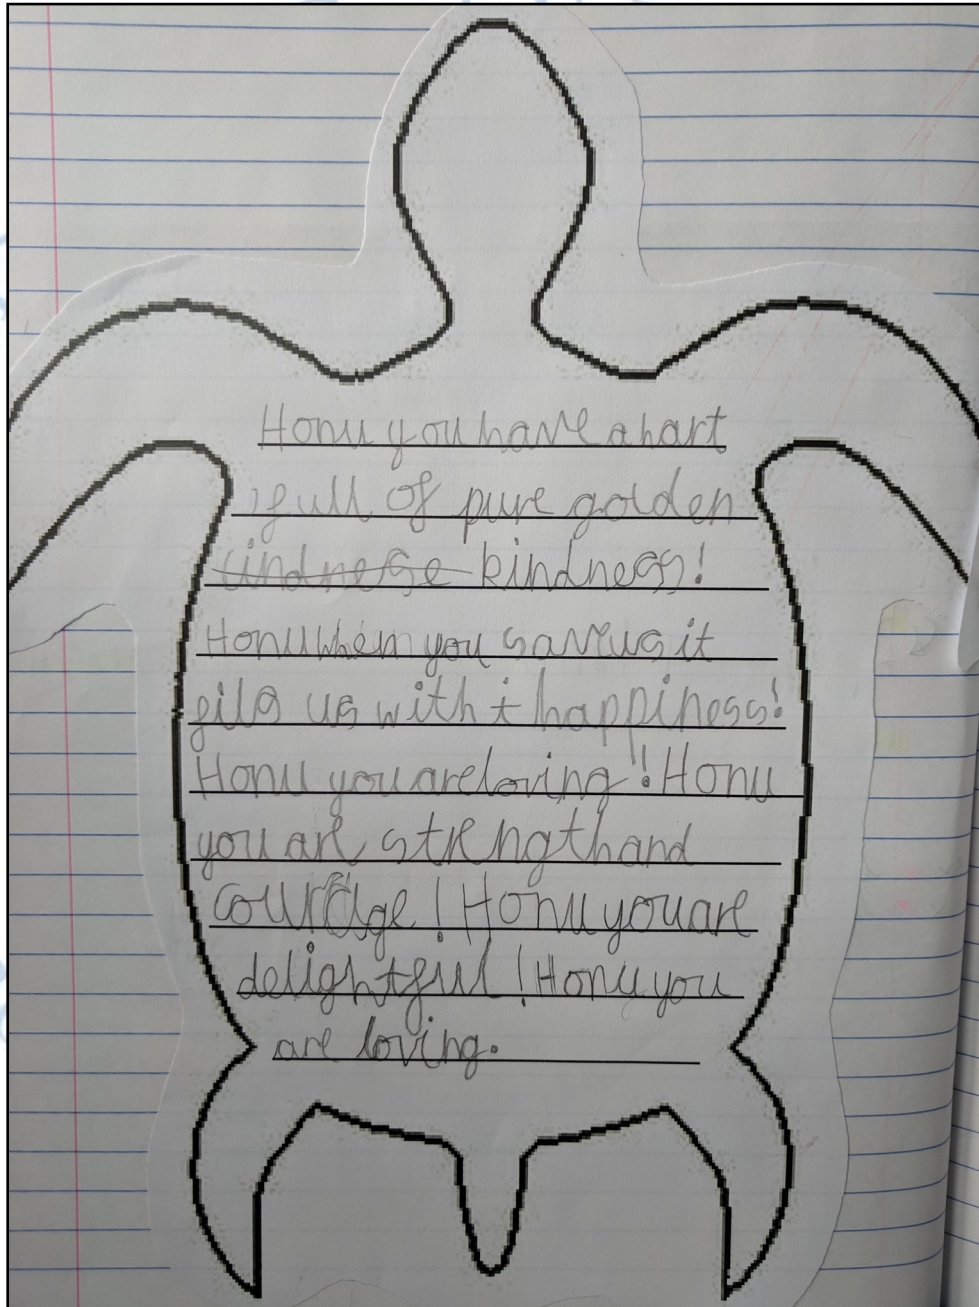 Honu you have a hart
full of pure golden
kindness!
Honu when you save us it
fils us with happiness!
Honu you are loving! Honu
you are strength and
courage! Honu you are
delightful! Honu you
are loving.